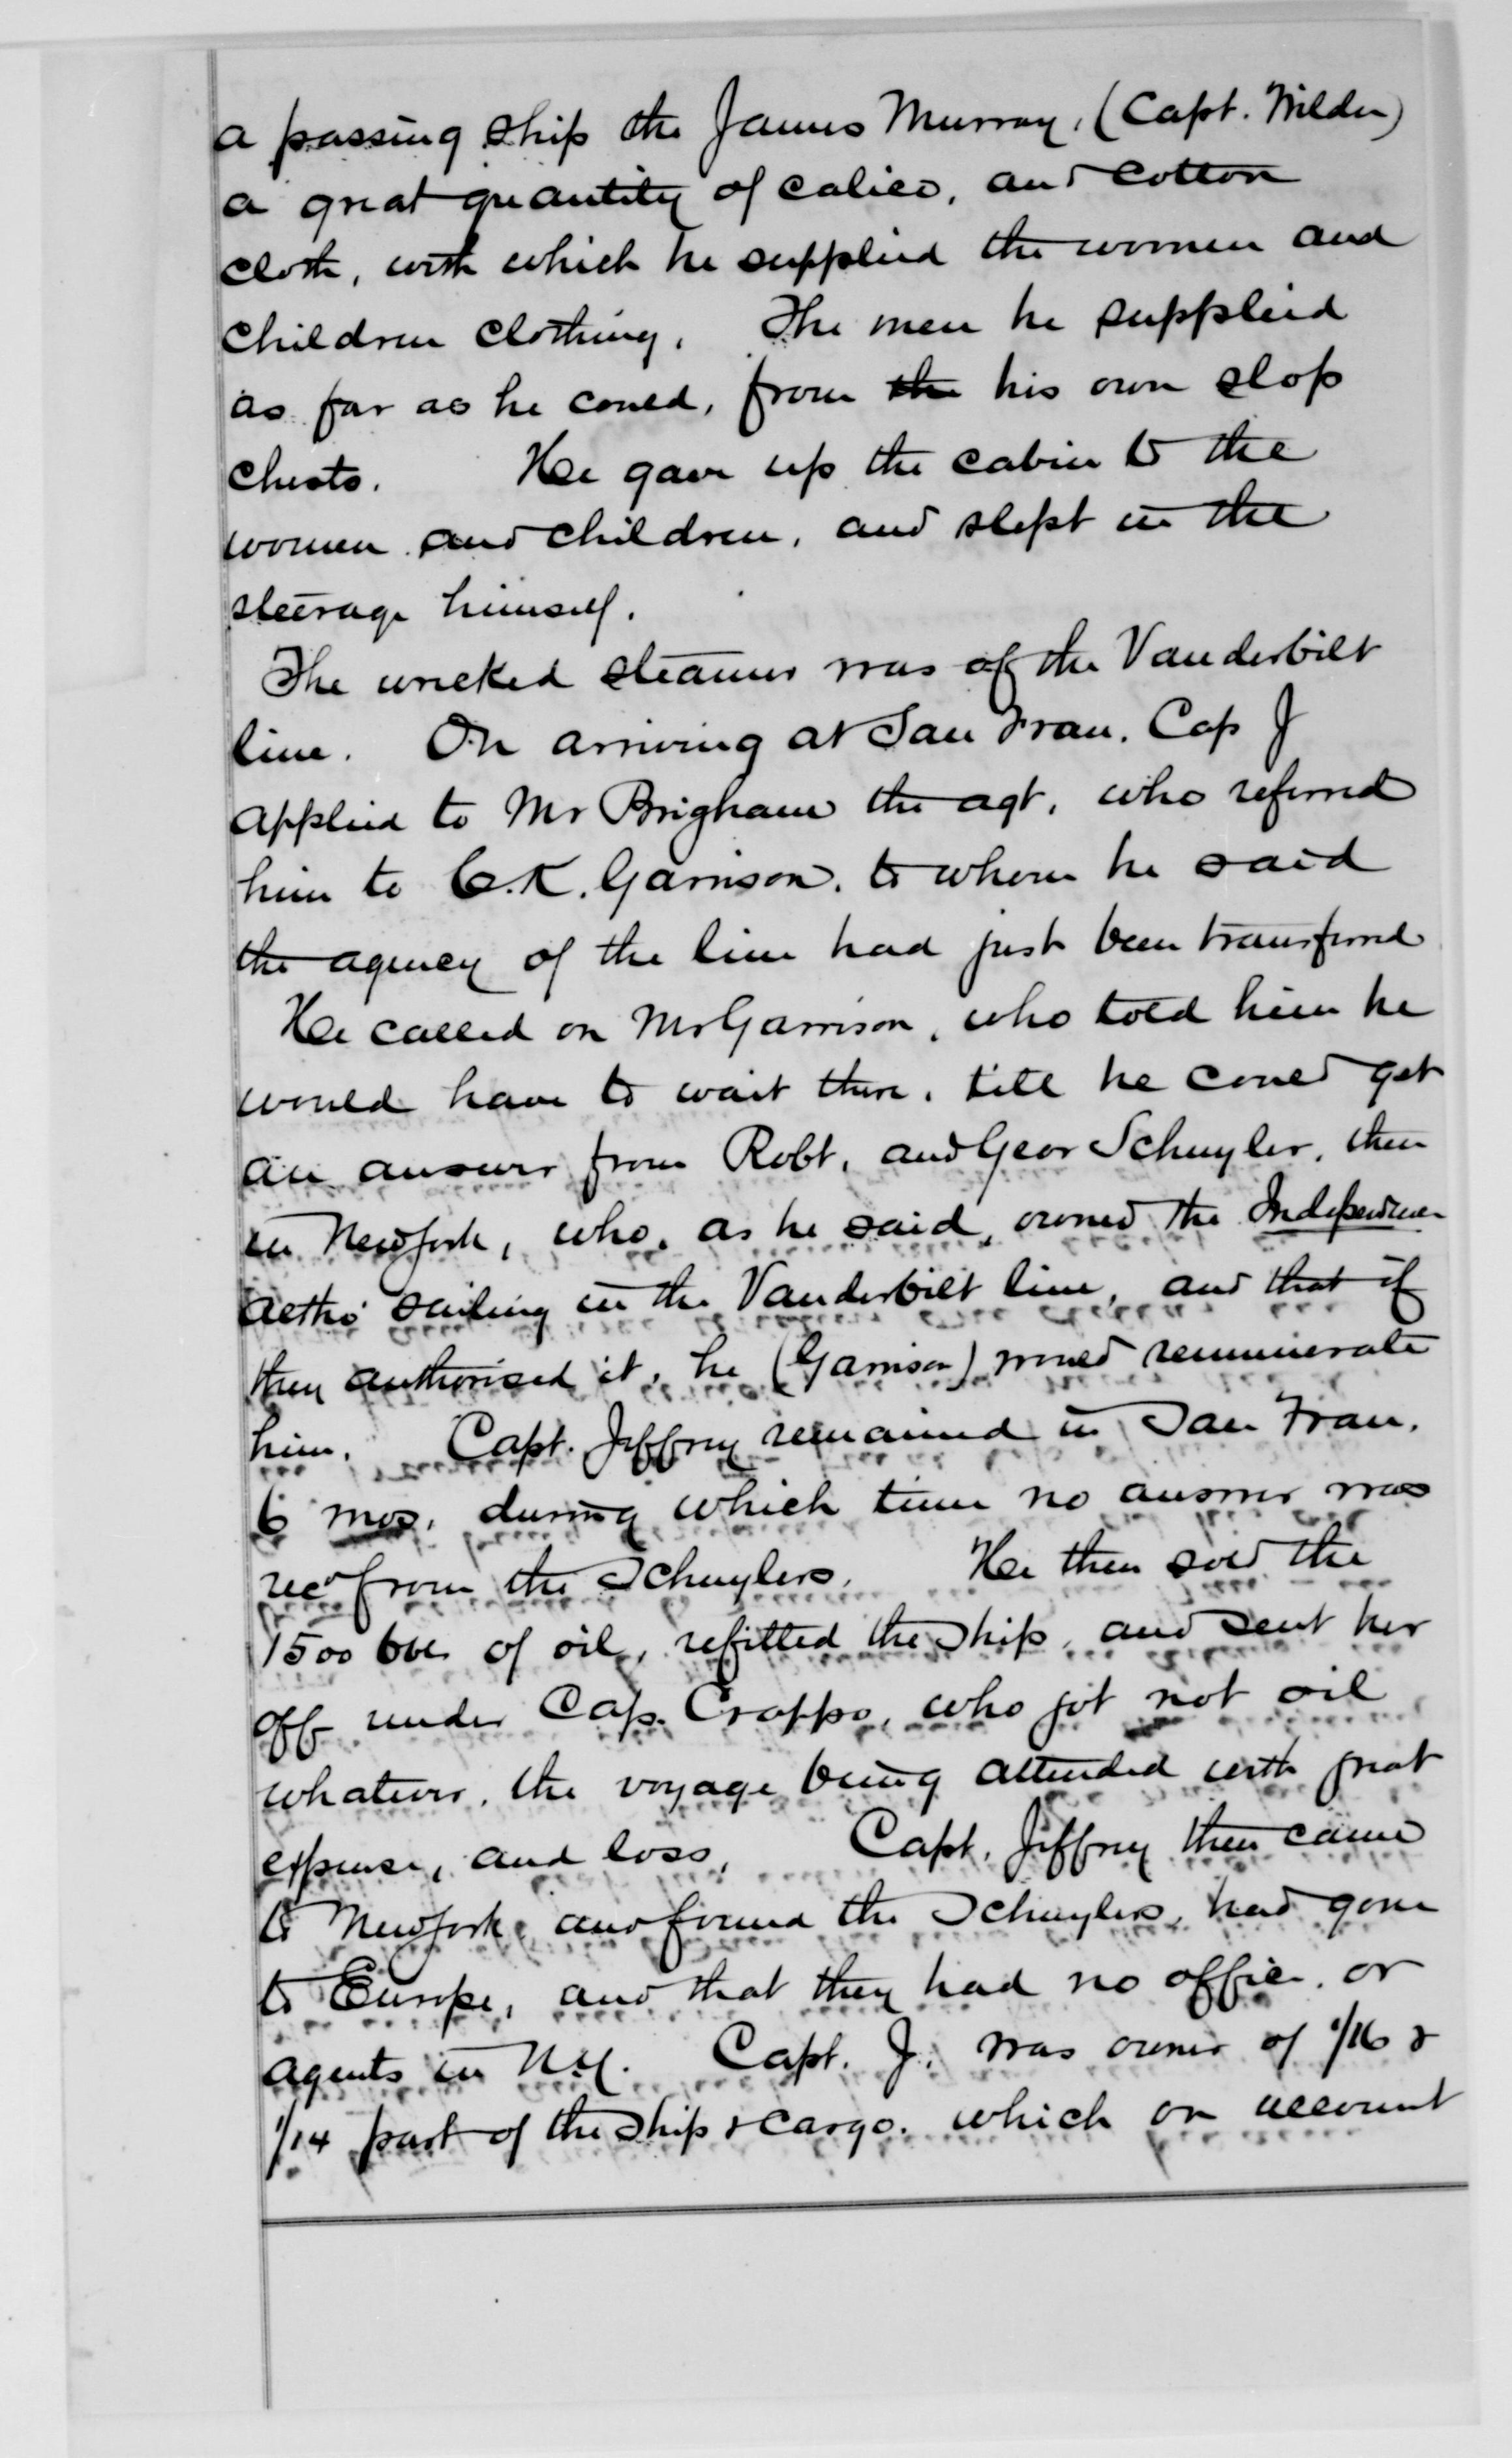 a passing ship the James Murray, (Capt. Wilder)
a great quantity of calico, and cotton
cloth, with which he supplied the women and
children clothing. The men he supplied
as far as he could, from the his own slop
chests. He gave up the cabin to the
women and children, and slept in the
steerage himself.
The wrecked steamer was of the Vanderbilt
line. On arriving at San Fran. Cap J
applied to Mr Brigham the agt. who referred
him to C.K. Garrison. to whom he said
the agency of the line had just been transferred
He called on Mr Garrison, who told him he
would have to wait there, till he could get
an answer from Robt. and Geor Schuyler, then
in New York, who, as he said, owned the Independence
altho' sailing in the Vanderbilt line, and that if
they authorised it, he (Garrison) would remunerate
him. Capt. Jeffrey remained in San Fran.
6 mos. during which time no answer was
recd from the Schuylers. He then sold the
1500 bbl of oil, refitted the ship, and sent her
off under Cap. Crappo, who got not oil
whatever, the voyage being attended with great
expense, and loss. Capt. Jeffrey then came
to New York and found the Schuylers, had gone
to Europe, and that they had no office, or
agents in N.Y. Capt. J. was owner of 1/16 &
1/14 part of the ship & cargo. which on account